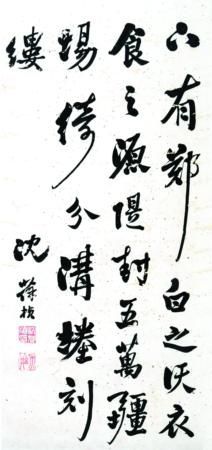 下有鄭白之沃衣
食之源隄封五萬疆
埸綺分溝塍刻
鏤
沈葆楨